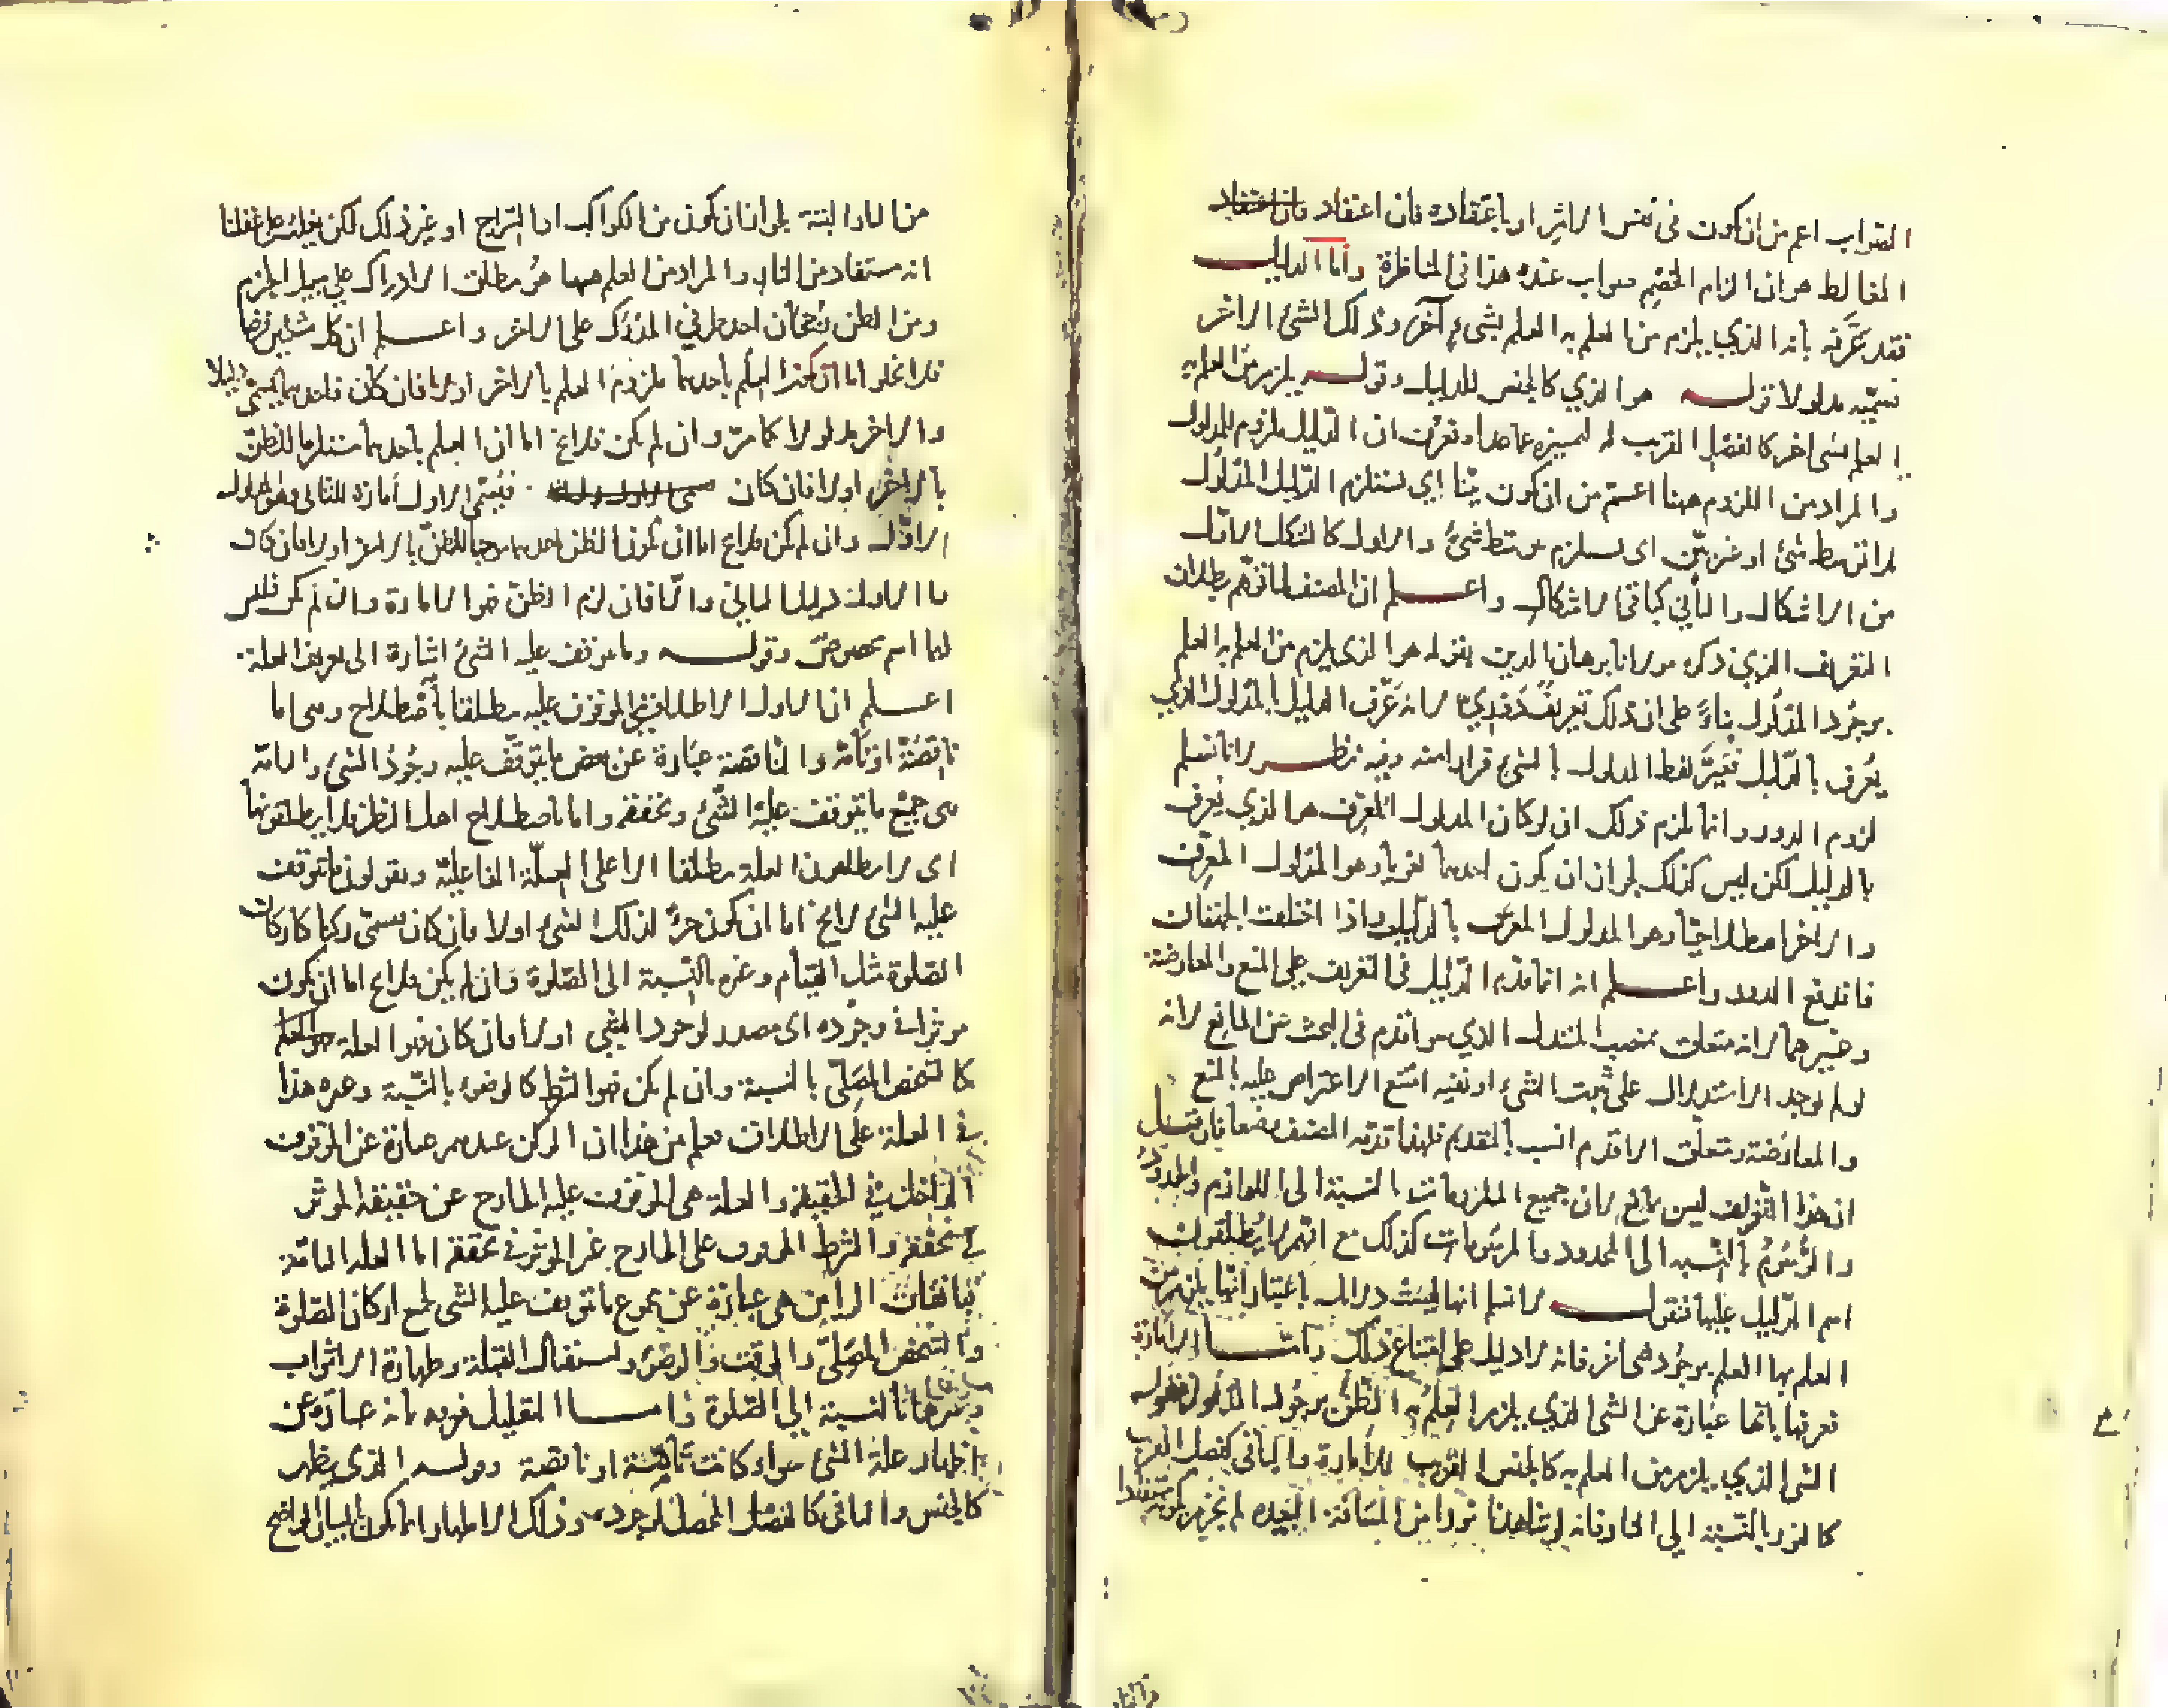 الصواب اعم من ان يكون في نفس الامر او باعتقاده فان اعتقاد فان اعتقاد
المغالط هو ان الزام الخصم صواب عنده هذا في المناظرة واما الدليل
فقد عرفه بانه الذي يلزم من العلم به العلم بشيء آخر وذلك الشئ الاخر
نسميه مدلولا قوله هو الذي كالجنس للدليل وقوله يلزم من العلم به
العلم بشئ اخر كالفصل القريب له لتميزه عما عداه وتعرف ان الدليل ملزوم للمدلول
والمراد من اللزوم ههنا اعم من ان يكون بينا اي يستلزم الدليل المدلول
لا بتوسط شئ او غير بين اى يستلزم بتوسط شئ والاول كالشكل الاول
من الاشكال والثاني كباقي الاشكال واعلم ان المصنف لما توهم بطلان
التعريف الذي ذكره مولانا برهان الدين بقوله هو الذي يلزم من العلم به العلم
بوجود المدلول بناء على ان ذلك تعريف دوري لانه عرف الدليل بالمدلول الذي
يعرف بالدليل فغير لفظ المدلول بالشئ فرارا منه وفيه نظر لانا نسلم
لزوم الدور وانما يلزم ذلك ان لو كان المدلول المعرف هو الذي يعرف
بالدليل لكن ليس كذلك لجواز ان يكون احدهما لغويا وهو المدلول المعرف
والاخر اصطلاحيا وهو المدلول المعرف بالدليل واذا اختلفت الجهتان
فاندفع الدور واعلم انه انما قدم الدليل في التعريف على المنع والمعارضة
وغيرهما لانه متعلق بمنصب المستدل الذي هو اقدم في البحث من المانع لانه
لو لم يوجد الاستدلال على ثبوت الشئ او نفيه امتنع الاعتراض عليه بالمنع
والمعارضة ومتعلق الاقدم انسب بالتقديم فلهذا قدمه المصنف وضعا فان قيل
ان هذا التعريف ليس بمانع لان جميع الملزومات بالنسبة الى اللوازم والحدود
والرسوم بالنسبة الى المحدود والمرسومات كذلك مع انهم لا يطلقون
اسم الدليل عليها فنقول لا نسلم انها ليست دلائل باعتبار انها يلزم من
العلم بها العلم بوجود شئ اخر فانه لا دليل على امتناع ذلك واما الامارة
فعرفها بانها عبارة عن الشئ الذي يلزم العلم به الظن بوجود المدلول فقوله
الشئ الذي يلزم من العلم به كالجنس القريب للامارة والباقي كفصل القريب
كالنور بالنسبة الى النار فانه لو شاهدنا نورا من المسافة البعيدة لم نجزم بكونه مستفادا
من النار البتة لجواز ان يكون من الكواكب او السراج او غير ذلك لكن يغلب على ظننا
انه مستفاد من النار والمراد من العلم ههنا هو مطلق الادراك على سبيل الجزم
ومن الظن رجحان احد طرفي المدرك على الاخر واعلم ان كل شيئين فرضا
فلا يخلو اما ان يكون العلم باحدهما ملزوم العلم بالاخر او لا فان كان فاحدهما يسمى دليلا
والاخر مدلولا كما مر وان لم يكن فلا يخ اما ان العلم باحدهما مستلزما للظن
بالاخر او لا فان كان فيسمى الاول أمارة للثاني
الاول وان لم يكن فلا يخ اما ان يكون الظن احدهما موجبا للظن بالاخر او لا فان كان
فالاول دليلا للثاني والا فان لزم الظن فهو الامارة وان لم يكن فليس
لهما اسم مخصوص وقوله وما يتوقف عليه الشئ اشارة الى تعريف العلة
اعلم ان الاول الاطلاق في الموقوف عليه مطلقا باصطلاح وهي اما
ناقصة او تامة والناقصة عبارة عن بعض ما يتوقف عليه وجود الشئ والتامة
هي جميع ما يتوقف عليه الشئ وتحققه واما باصطلاح اهل النظر فلا يطلقونها
اى لا يطلقون العلة مطلقا الا على العلة الفاعلية ويقولون ما يتوقف
عليه الشئ لا يخ اما ان يكون جزء لذلك الشئ او لا فان كان يسمى ركنا كاركان
الصلوة مثل القيام وغيره بالنسبة الى الصلوة وان لم يكن فلا يخ اما ان يكون
موثرا في وجوده اى مصدر لوجود الشئ او لا فان كان فهو العلة
كالشخص المصلى بالنسبة وان لم يكن فهو الشرط كالوضوء بالنسبة وغيره هذا
في العلة على الاطلاق فعلم من هذا ان الركن عندهم عبارة عن الموقوف
الداخل في الحقيقة والعلة هي الموقوف عليه الخارج عن حقيقة الموثر
في تحققه والشرط الموقوف على الخارج غير الموثر في تحققه اما العلة التامة
فباتفاق الرايين هي عبارة عن مجموع ما يتوقف عليه الشئ لجميع اركان الصلوة
والشخص المصلى والوقت والوضوء واستقبال القبلة وطهارة الاثواب
وغيرها بالنسبة الى الصلوة واما التعليل فعرفه بانه عبارة عن
اظهار علة الشئ سواء كانت تامة او ناقصة وقوله الذي يظهر
كالجنس والباقي كالفصل وذلك الاظهار انما يكون بالبيان الواضح